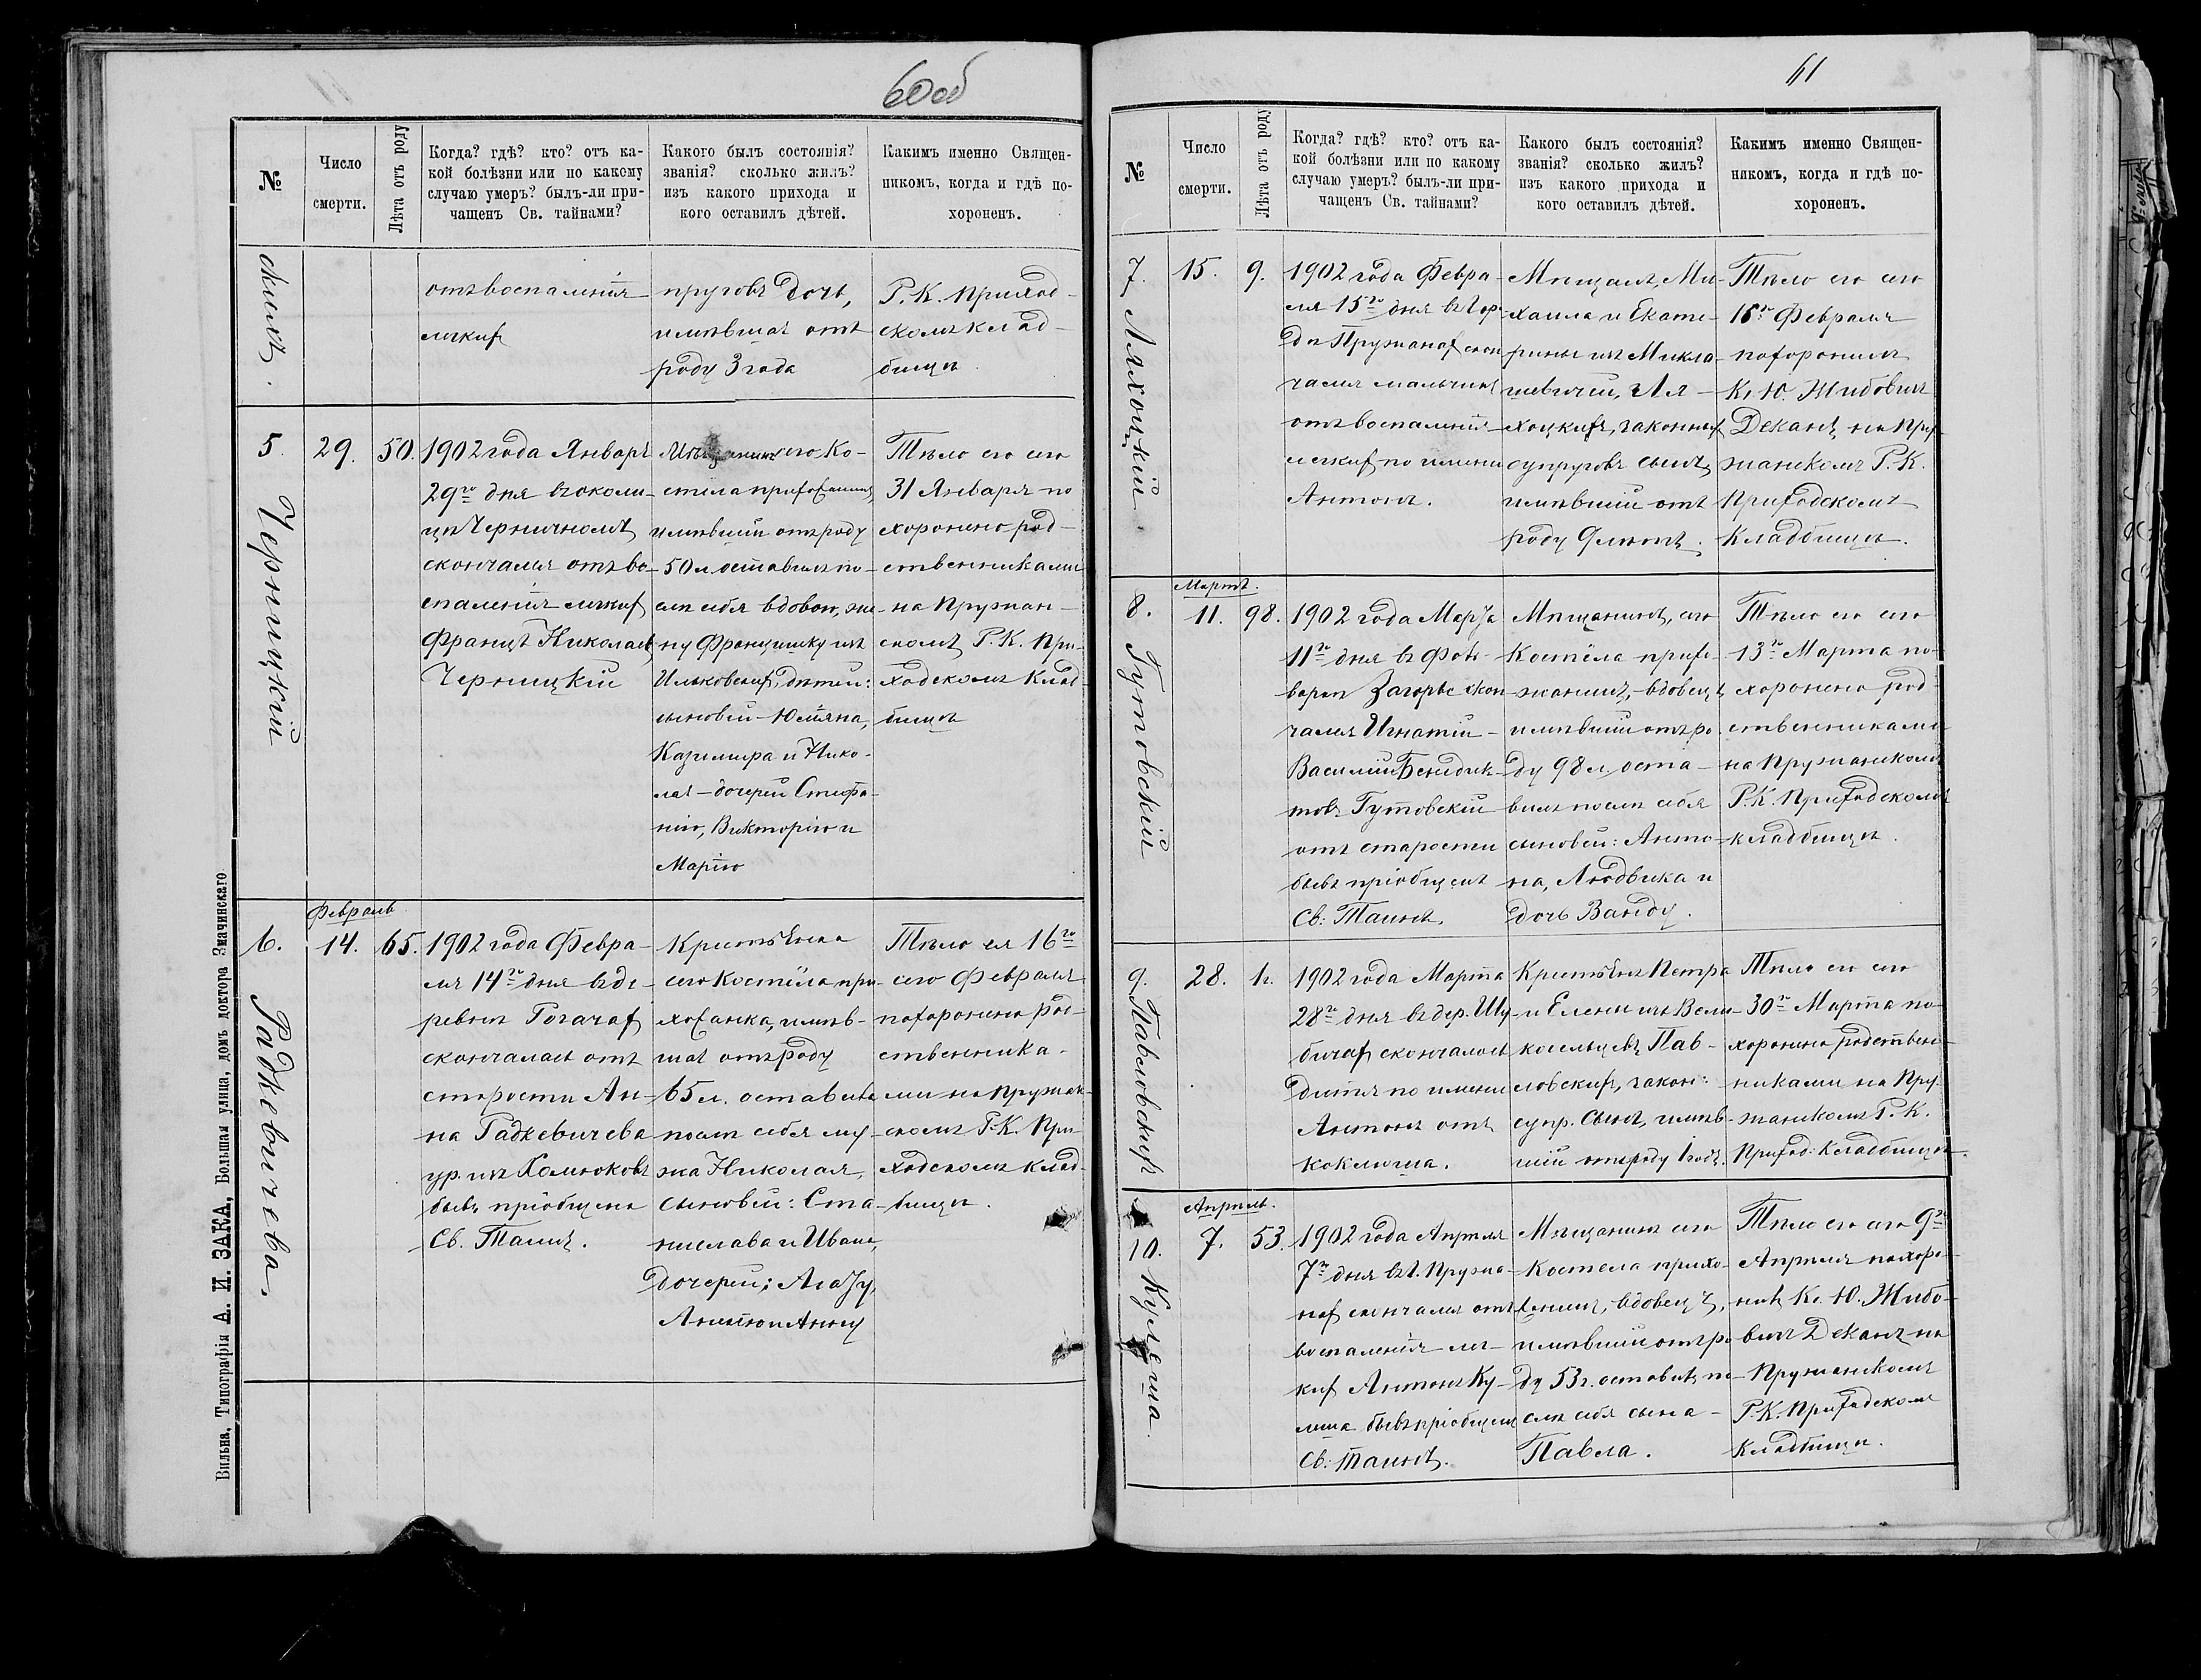 60об
№
Число
смерти.
Лѣта отъ роду
Когда? гдѣ? кто? отъ ка-
кой болѣзни или по какому
случаю умеръ? былъ-ли при-
чащенъ Св. тайнами?
Какого былъ состоянія?
званія? сколько жилъ?
изъ какого прихода и
кого оставилъ дѣтей.
Какимъ именно Священ-
никомъ, когда и гдѣ по-
хороненъ.
отъ воспаленія
легкихъ
пруговъ дочь,
имѣвшая отъ
роду 3 года
Р. К. Приход-
скомъ клад-
бищѣ.
5.
Черницкій
29.
50.
1902 года Января
29го дня въ околи-
цѣ Черничномъ
скончался отъ во-
спаленія легкихъ
Францъ Николаевъ
Черницкій
Мѣщанинъ сего Ко-
стела прихожанинъ
имѣвшій отъ роду
50 л. оставилъ по-
слѣ себя вдовою, же-
ну Францишку изъ
Ильковскихъ, дѣтей:
сыновей Юліяна,
Казимира и Нико-
лая – дочерей Стефа-
нію, Викторію и
Марію
Тѣло его сего
31 Января по
хоронено род-
ственниками
на Пружан-
скомъ Р. К. При-
ходскомъ Клад-
бищѣ
Февраль
6.
Радкевичева.
14.
65.
1902 года Февра-
ля 14го дня въ де-
ревнѣ Рогачахъ
скончалась отъ
старости Ан-
на Радкевичева
ур. изъ Хомюковъ
бывъ пріобщена
Св. Таинъ.
Крестьянка
сего Костёла при-
хожанка, имѣв-
шая отъ роду
65 л. оставила
послѣ себя му-
жа Николая,
сыновей: Ста-
нислава и Ивана,
дочерей: Агату,
Анелію и Анну
Тѣло ея 16го
сего Февраля
похоронено род-
ственника-
ми на Пружан-
скомъ Р. К. При-
ходскомъ клад-
бищѣ.
Вильна, Типографія А. И. ЗАКА, Большая улица, домъ доктора Значинскаго
61
№
Число
смерти.
Лѣта отъ роду
Когда? гдѣ? кто? отъ ка-
кой болѣзни или по какому
случаю умеръ? былъ-ли при-
чащенъ Св. тайнами?
Какого былъ состоянія?
званія? сколько жилъ?
изъ какого прихода и
кого оставилъ дѣтей.
Какимъ именно Священ-
никомъ, когда и гдѣ по-
хороненъ.
7.
Ляхоцкій
15.
9.
1902 года Февра-
ля 15го дня въ гор-
дѣ Пружанахъ скон
чался мальчикъ
отъ воспаленія
легкихъ по имени
Антонъ.
Мѣщанъ, Ми-
хаила и Екате-
рины изъ Микла-
шевичей, Ля-
хоцкихъ, законныхъ
супруговъ сынъ,
имѣвшій отъ
роду 9 лѣтъ.
Тѣло его сего
16го Февраля
похоронилъ
Кс. Ю. Жибовичъ
Деканъ на Пру-
жанскомъ Р. К.
Приходскомъ
Кладбищѣ.
Мартъ.
8.
Гутовскій
11.
98.
1902 года Марта
11го дня въ фоль-
варкѣ Загорье скон
чался Игнатій
Василій Бенедик-
товъ Гутовскій
отъ старости
бывъ пріобщенъ
Св: Таинъ.
Мѣщанинъ, сего
Костёла прихо-
жанинъ, вдовецъ
имѣвшій отъ ро-
ду 98 л. оста-
вилъ послѣ себя
сыновей: Анто-
на, Людвика и
дочь Ванду.
Тѣло его сего
13го Марта по-
хоронено род-
ственниками
на Пружанскомъ
Р. К. Приходскомъ
кладбищѣ.
9.
Павловскихъ
28.
1 г.
1902 года Марта
28го дня въ дер. Шу-
бичахъ скончалось
дитя по имени
Антонъ отъ
коклюша.
Крестьянъ Петра
и Елены изъ Вели-
косельцевъ Пав-
ловскихъ, закон:
супр. сынъ, имѣв-
шій отъ роду 1 годъ.
Тѣло его сего
30го Марта по-
хоронено родствен-
никами на Пру-
жанскомъ Р. К.
Приход: Кладбищѣ.
Апрѣль.
10.
Кулеша
7.
53.
1902 года Апрѣля
7го дня въ г. Пружа-
нахъ скончался отъ
воспаленія лег-
кихъ Антонъ Ку-
леша бывъ пріобщенъ
Св: Таинъ.
Мѣщанинъ сего
Костела прихо-
жанинъ, вдовецъ,
имѣвшій отъ ро
ду 53 г. оставилъ по-
слѣ себя сына
Павла.
Тѣло его сего 9го
Апрѣля похоро-
нилъ Кс. Ю. Жибо-
вичъ Деканъ на
Пружанскомъ
Р. К. Приходскомъ
Кладбищѣ.